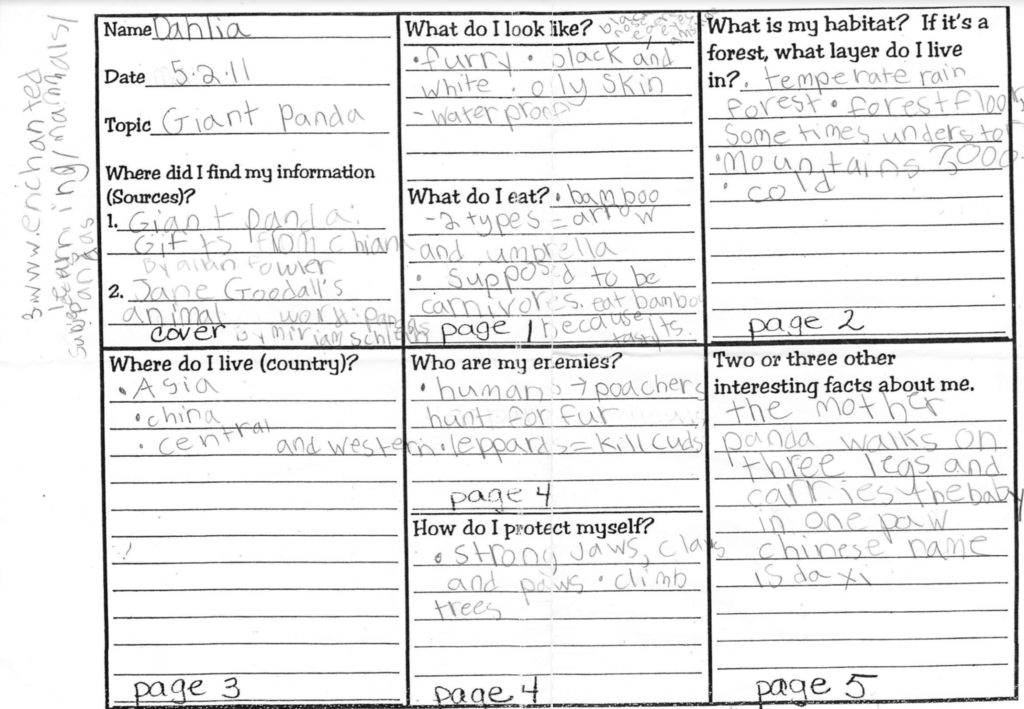 Name Dahlia
Date 5.2.11
Topic Giant panda
Where did I find my information
(Sources)?
1. Giant panda:
Gifts from chian
Fowler
2. Jane Goodall's
animal world: pandas
cover by miriam schlein
3 www.enchanted
learning/mammals/
pandas
What do I look like? black
nose
• furry • black and
white • oily skin
- water proof
What do I eat? • bamboo
- 2 types = arrow
and umbrella
• supposed to be
carnivores. eat bamboo
page 1 because
What is my habitat? If it's a
forest, what layer do I live
in? • temperate rain
forest • forest floor
some times understo
• Mountains 7,000
• cold
page 2
Where do I live (country)?
• Asia
• china
• central and western
page 3
Who are my enemies?
• humans → poachers
hunt for fur
• leppards = kill cuds
page 4
How do I protect myself?
• strong jaws, claws
and paws • climb
trees
page 4
Two or three other
interesting facts about me.
the mother
panda walks on
three legs and
carries the baby
in one paw
chinese name
is da xi
page 5